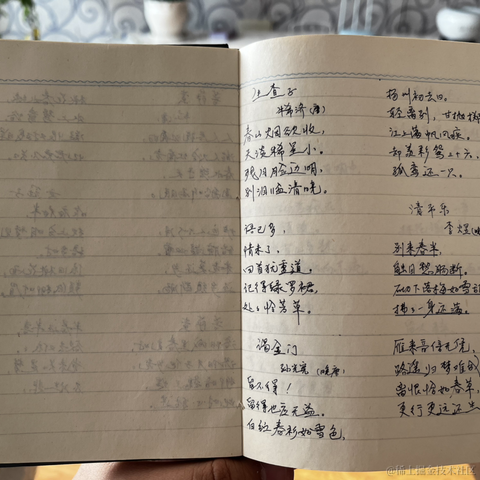 生查子
牛希济(唐)
春山烟欲收,
天淡稀星小。
残月脸边明,
别泪临清晓。
语已多,
情未了,
回首犹重道,
记得绿罗裙,
处々怜芳草。
谒金门
孙光宪(晚唐)
留不得!
留得也应无益。
白纻春衫如雪色,
扬州初去日。
轻离别,甘抛掷
江上满帆风疾。
却羡彩鸳三十六,
孤鸾还一只。
清平乐
李煜
别来春半,
触目愁肠断。
砌下落梅如雪乱
拂了一身还满。
雁来音信无凭,
路遥归梦难成
离恨恰如春草,
更行更远还生
@稀土掘金技术社区